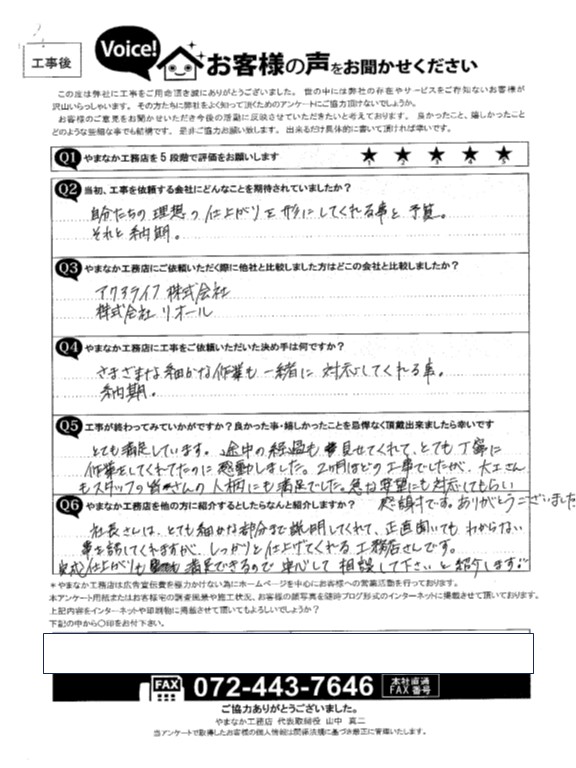 工事後
Voice!
お客様の声をお聞かせください
この度は弊社に工事をご用命頂き誠にありがとうございました。世の中には弊社の存在やサービスをご存知ないお客様が
沢山いらっしゃいます。その方たちに弊社をよく知って頂くためのアンケートにご協力頂けないでしょうか。
お客様のご意見をお聞かせいただき今後の活動に反映させていただきたいと考えております。良かったこと、嬉しかったこと
どのような些細な事でも結構です。是非ご協力お願い致します。出来るだけ具体的に書いて頂ければ幸いです。
Q1 やまなか工務店を5段階で評価をお願いします ★ ★ ★ ★ ★
1 2 3 4 5
Q2 当初、工事を依頼する会社にどんなことを期待されていましたか?
自分たちの理想の仕上がりを形にしてくれる事と予算。
それと納期。
Q3 やまなか工務店にご依頼いただく際に他社と比較しました方はどこの会社と比較しましたか?
アクアライフ株式会社
株式会社リオール
Q4 やまなか工務店に工事をご依頼いただいた決め手は何ですか?
さまざまな細かな作業も一緒に対応してくれる事。
納期。
Q5 工事が終わってみていかがですか?良かった事・嬉しかったことを忌憚なく頂戴出来ましたら幸いです
とても満足しています。途中の経過も見せてくれて、とても丁寧に
作業をしてくれてたのに感動しました。2ヶ月ほどの工事でしたが、大工さん
もスタッフの皆さんの人柄にも満足でした。急な要望にも対応してもらい
感謝です。ありがとうございました
Q6 やまなか工務店を他の方に紹介するとしたらなんと紹介しますか?
社長さんは、とても細かな部分まで説明してくれて、正直聞いてもわからない
事を話してくれますが、しっかりと仕上げてくれる工務店さんです。
完成仕上がりも満足できるので安心して相談して下さいと紹介します
*やまなか工務店は広告宣伝費を極力かけない為にホームページを中心にお客様への営業活動を行っております。
本アンケート用紙またはお客様宅の調査風景や施工状況、お客様の顔写真を随時ブログ形式のインターネットに掲載させて頂いております。
上記内容をインターネットや印刷物に掲載させて頂いてもよろしいでしょうか?
下記の中から○印をお付下さい。
FAX 072-443-7646 本社直通
FAX番号
ご協力ありがとうございました。
やまなか工務店 代表取締役 山中 真二
当アンケートで取得したお客様の個人情報は関係法規に基づき厳正に管理いたします。